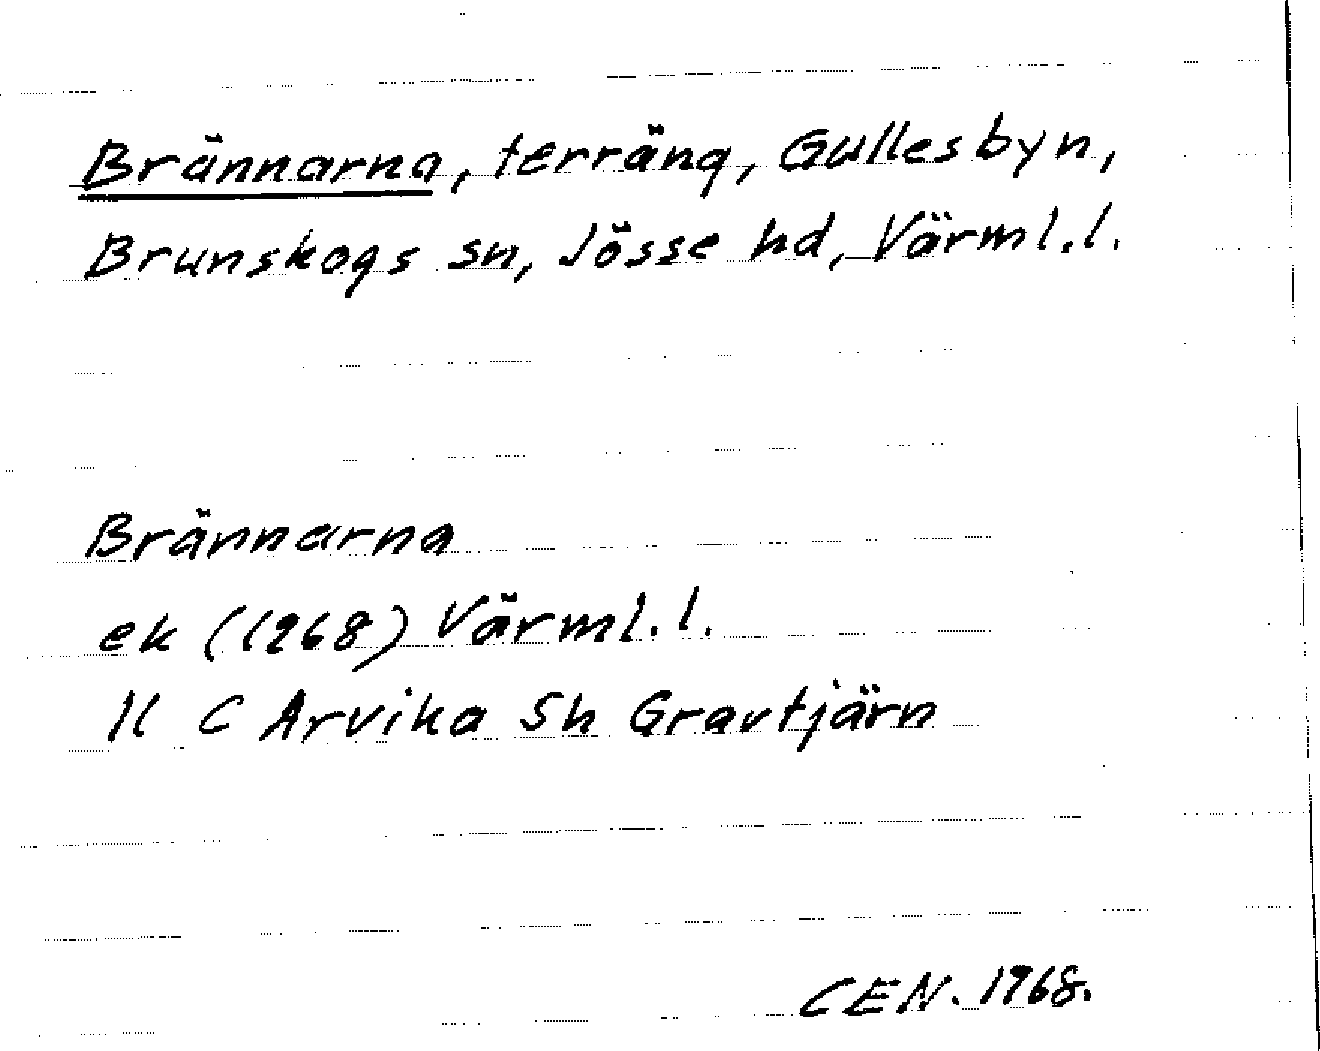 Brännarna, terräng, Gullesbyn,
Brunskogs sn, Jösse hd, Värml. l.
Brännarna
ek (1968) Värml. l.
11 C Arvika SÖ Gravtjärn
CEN. 1968.